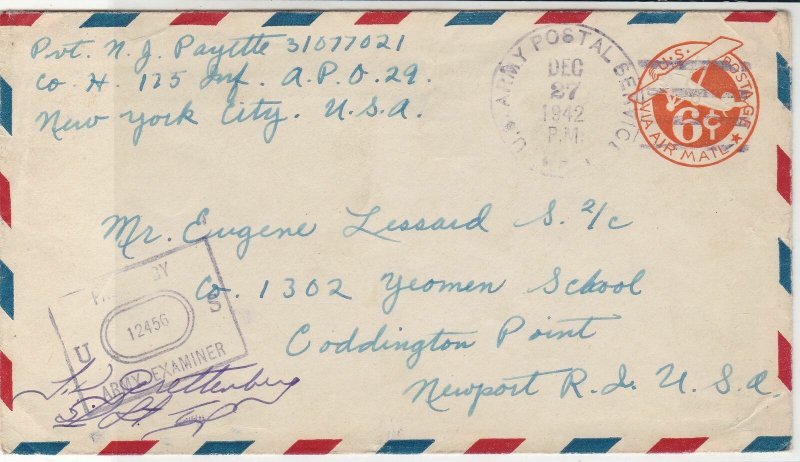 Pvt. N. J. Payette 31077021
Co. H. 175 Inf. A.P.O. 29.
New York City. U.S.A.
U.S. ARMY POSTAL SERVICE
DEC
27
1942
P.M.
U.S. POSTAGE
6¢
VIA AIR MAIL
Mr. Eugene Lessard S. 2/c
Co. 1302 Yeomen School
Coddington Point
Newport R.I. U.S.A.
PASSED BY
U 12456 S
ARMY EXAMINER